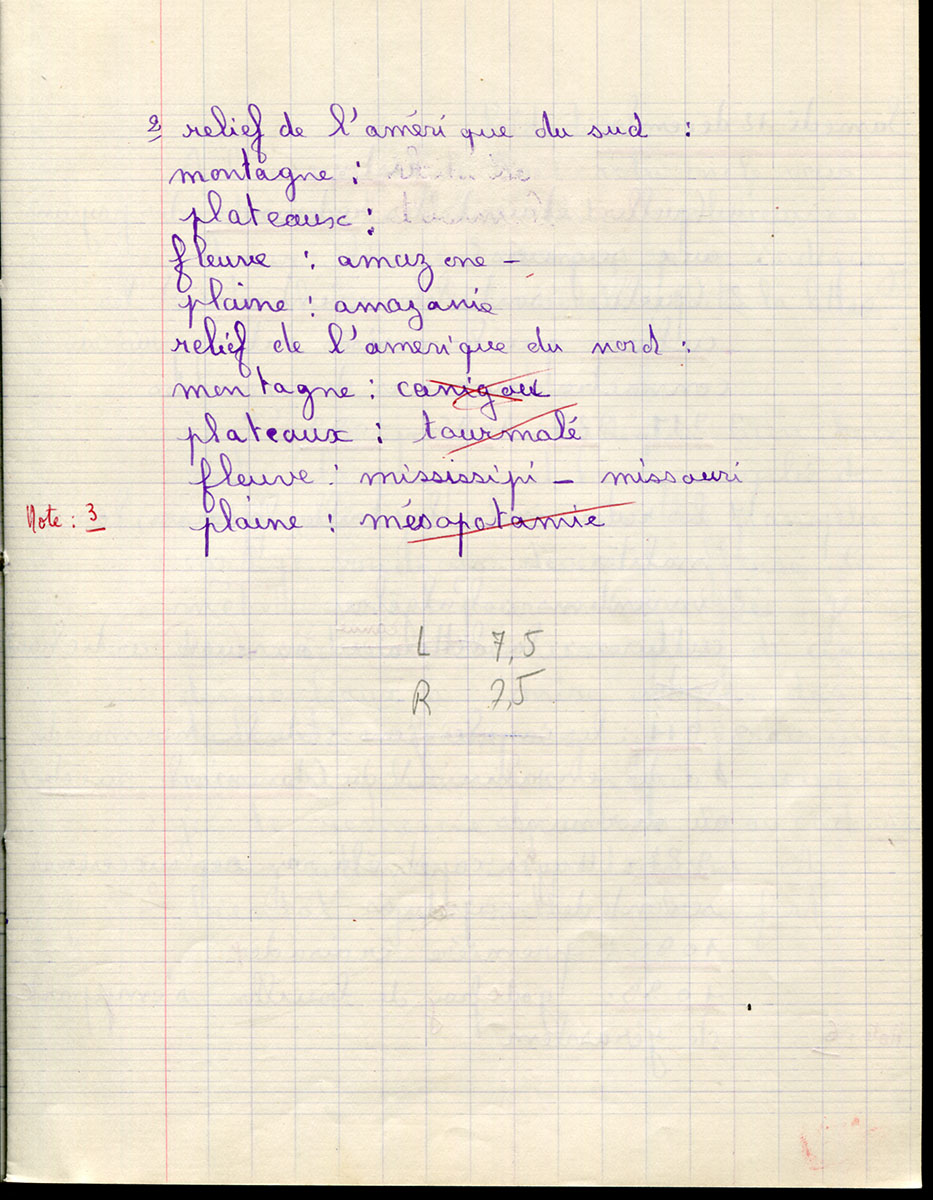 2 relief de l'améri que du sud :
montagne :
plateaux :
fleuve : amazone -
plaine : amazanie
relief de l'amerique du nord :
montagne : canigou
plateaux : tourmalé
fleuve : mississipi - missouri
Note : 3 plaine : mésapotamie
L 7,5
R 7,5